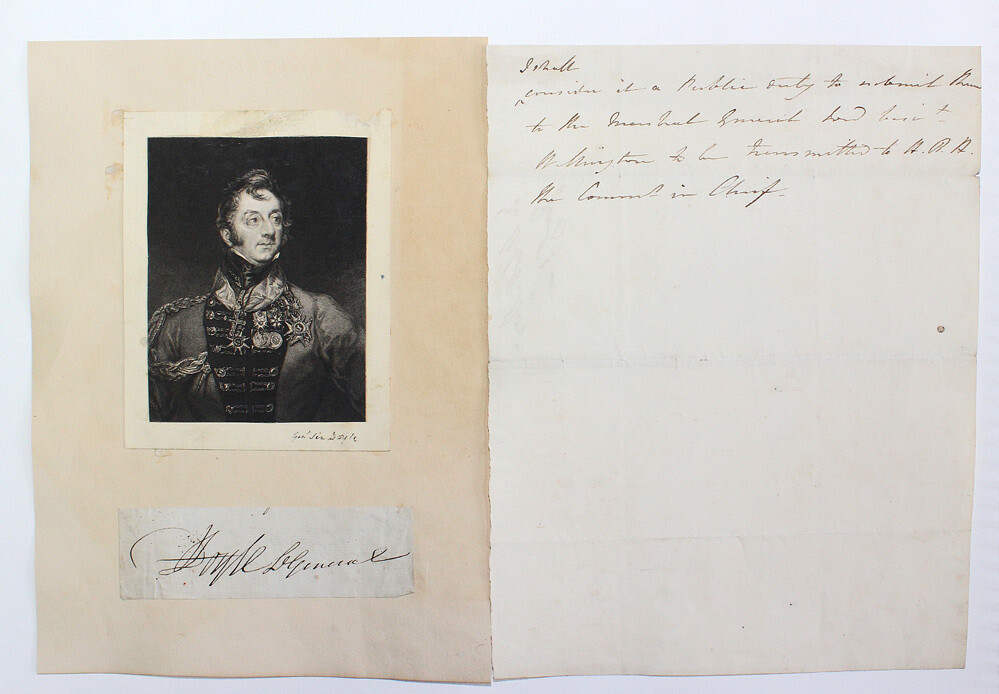 Genl Sir Doyle
Doyle Lt General
I shall
consider it a Public duty to submit them
to the Marshal General Lord Visct
Wellington to be transmitted to H. R. H.
the Commr in Chief.